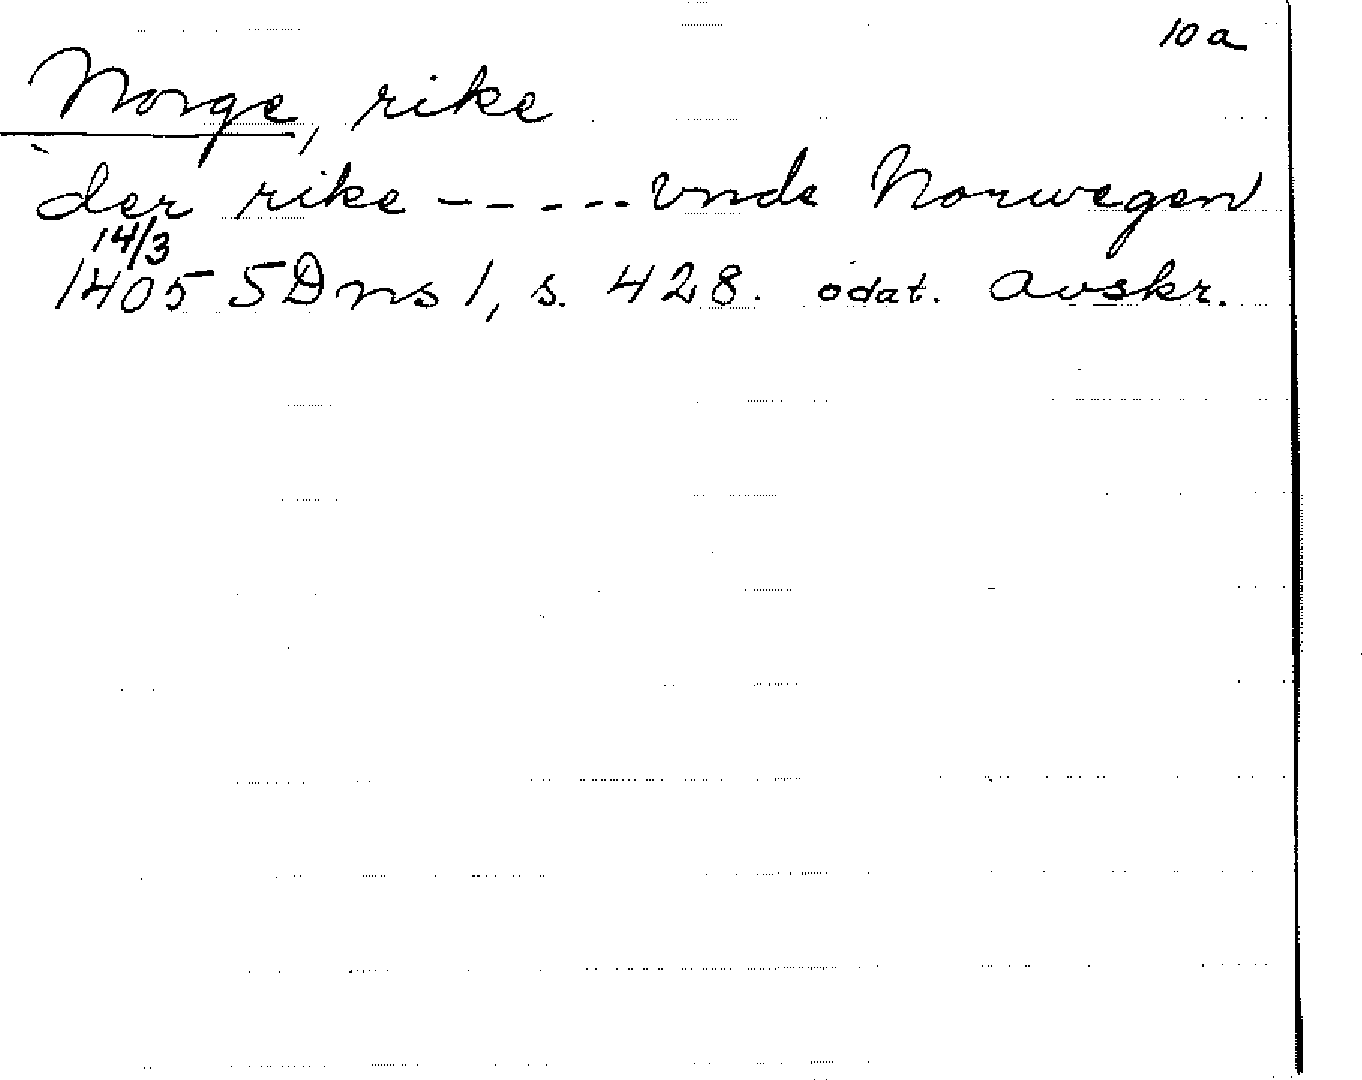 10 a
Norge, rike
der rike ----- vnde Norwegen
14/3
1405 SDns 1, s. 428. odat. Avskr.